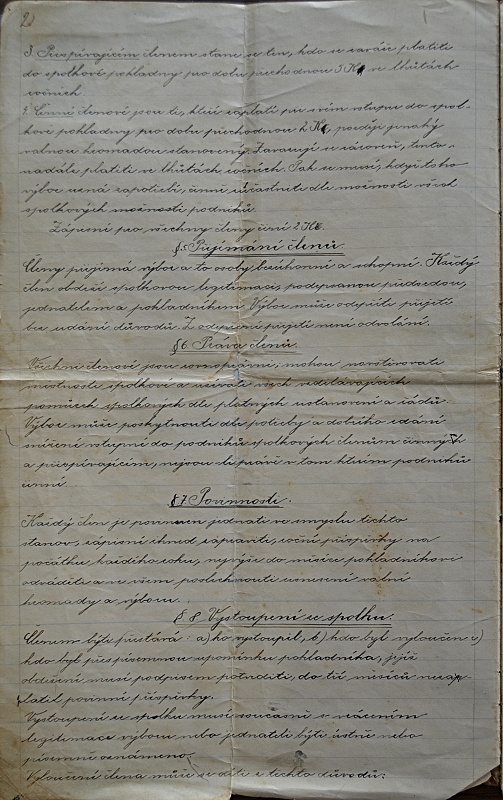 22
3. Přispívajícím členem stane se ten, kdo se zaváže platiti
do spolkové pokladny po dobu přechodnou 5 Kč ve lhůtách
ročních.
4. Činní členové jsou ti, kteří zaplatí při svém vstupu do spol-
kové pokladny po dobu přechodnou 2 Kč, později jenž
valnou hromadou stanovený. Zavazují se zároveň, tento
nadále platiti ve lhůtách ročních. Pak se musí, když toho
výbor uzná zapotřebí, činně účastniti dle možnosti všech
spolkových možností podniků.
Zápisné pro všechny členy činí 2 Kč.
§.5. Přijímání členů.
Členy přijímá výbor a to osoby bezúhonné a schopné. Každý
člen obdrží spolkovou legitimaci, podepsanou předsedou,
jednatelem a pokladníkem. Výbor může odepříti přijetí
bez udání důvodů. Z odepření přijetí není odvolání.
§6. Práva členů.
Všichni členové jsou rovnoprávní, mohou navštěvovati
místnosti spolkové a užívati všech vzdělávacích
pomůcek spolkových dle platných ustanovení a řádů.
Výbor může poskytnouti dle potřeby a dobrého zdání
snížení vstupné do podniků spolkových členům činným
a přispívajícím, nejsou-li právě v tom kterém podniku
činní.
§ 7. Povinnosti.
Každý člen je povinen jednati ve smyslu těchto
stanov, zápisné ihned zapraviti, roční příspěvky na
počátku každého roku, nejvýše do měsíce pokladníkovi
odváděti a ve všem poslechnouti usnesení valné
hromady a výboru.
§ 8. Vystoupení ze spolku.
Členem býti přestává: a) kdo vystoupil, b) kdo byl vyloučen c)
kdo byv písemnou upomínku pokladníka, jejíž
obdržení musí podpisem potvrditi, do tří měsíců neza-
platil povinné příspěvky.
Vystoupení ze spolku musí současně s vrácením
legitimace výboru nebo jednateli býti ústně nebo
písemně oznámeno.
Vyloučení člena může se díti z těchto důvodů: